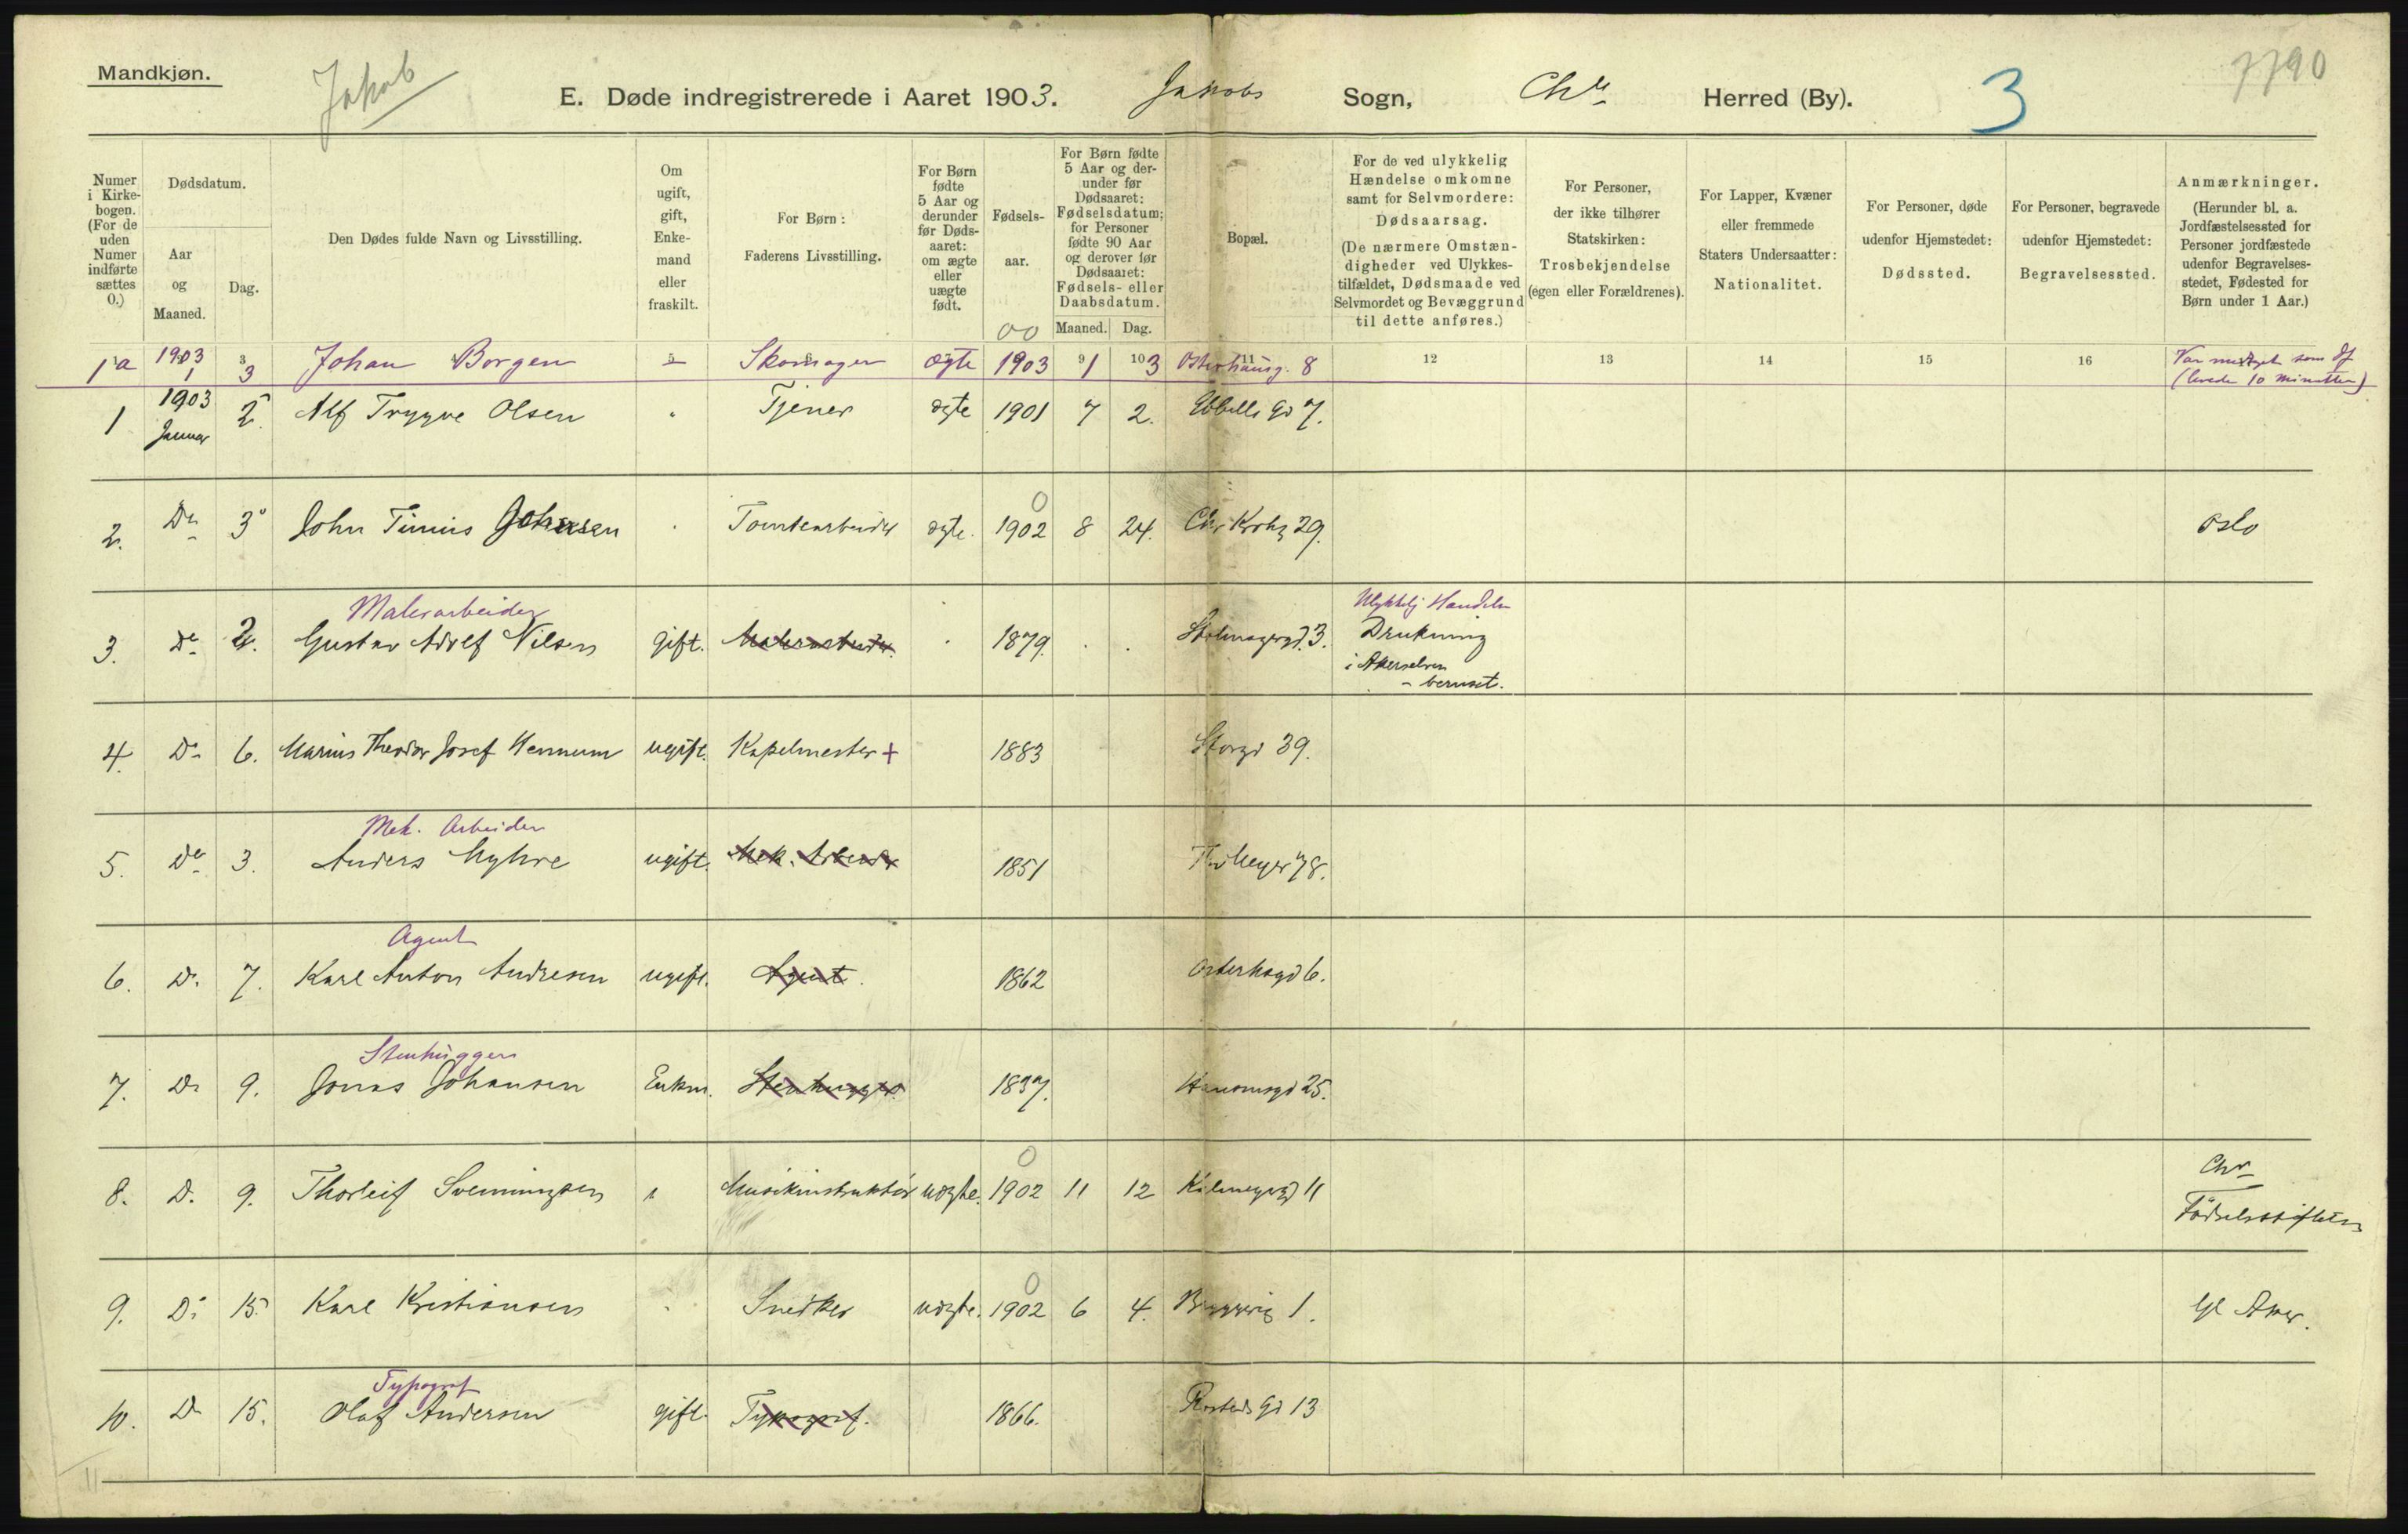 Mandkjøn.
Jakob
E. Døde indregistrerede i Aaret 1903. Jakobs Sogn, Chr Herred (By). 3
7790
Numer i Kirke-bogen. (For de uden Numer indførte sættes 0.)
Dødsdatum.
Aar og Maaned.
Dag.
Den Dødes fulde Navn og Livsstilling.
Om ugift, gift, Enke-mand eller fraskilt.
For Børn: Faderens Livsstilling.
For Børn fødte 5 Aar og derunder før Døds-aaret: om ægte eller uægte født.
Fødsels-aar.
00
For Børn fødte 5 Aar og der-under før Dødsaaret: Fødselsdatum; for Personer fødte 90 Aar og derover før Dødsaaret: Fødsels- eller Daabsdatum.
Maaned. Dag.
Bopæl.
For de ved ulykkelig Hændelse omkomne samt for Selvmordere: Dødsaarsag. (De nærmere Omstæn-digheder ved Ulykkes-tilfældet, Dødsmaade ved Selvmordet og Bevæggrund til dette anføres.)
For Personer, der ikke tilhører Statskirken: Trosbekjendelse (egen eller Forældrenes).
For Lapper, Kvæner eller fremmede Staters Undersaatter: Nationalitet.
For Personer, døde udenfor Hjemstedet: Dødssted.
For Personer, begravede udenfor Hjemstedet: Begravelsessted.
Anmærkninger. (Herunder bl. a. Jordfæstelsessted for Personer jordfæstede udenfor Begravelses-stedet, Fødested for Børn under 1 Aar.)
3 5 9 10 11 12 13 14 15 16
1a 1903 1 3 Johan Borgen - Skomager ægte 1903 1 3 Osterhausg. 8 Var medtaget som df (levede 10 minutter)
1 1903 Januar 2 Alf Trygve Olsen " Tjener ægte 1901 7 2. Ebbells Gd 7.
2. Do 3 John Timius Johansen " Tomtearbeider ægte. 0 1902 8 24. Chr Krohg 29. Oslo
Malerarbeider
3. Do 2. Gustav Adolf Nilsen gift. Malerarbeider. 1879. 3. Ulykkelig Handelse Drukning i Akerselven - beruset.
4. Do 6. Marius Theodor Josef Hennum ugift. Kapelmester + 1883 Storgd 39.
Mek. Arbeider
5. Do 3. Anders Myhre ugift. Mek. Arbeider 1851 Thv Meyer 78.
Agent
6. Do 7. Karl Anton Andresen ugift. Agent. 1862 Osterhsgd 6.
Stenhugger
7. Do 9. Jonas Johansen Enkm. Stenhugger. 1837. Hausmsgd 25.
8. Do. 9. Thorleif Svenningsen " Musikinstruktør uægte. 0 1902 11 12 11 Chr Fødselsstiftelsen
9. Do 15. Karl Kristiansen " Snedker uægte. 0 1902 6 4. 1. Gl Aker.
Typograf
10. Do 15. Olaf Andersen gift. Typograf. 1866. Rosteds Gd 13
11